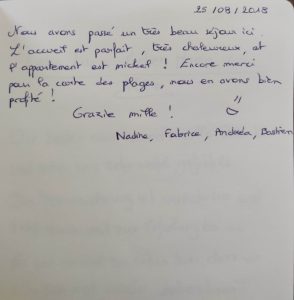 25/08/2018
Nous avons passé un très beau séjour ici.
L'accueil est parfait, très chaleureux, et
l'appartement est nickel ! Encore merci
pour la carte des plages, nous en avons bien
profité !
Grazie mille !
Nadine, Fabrice, Andréa, Bastien